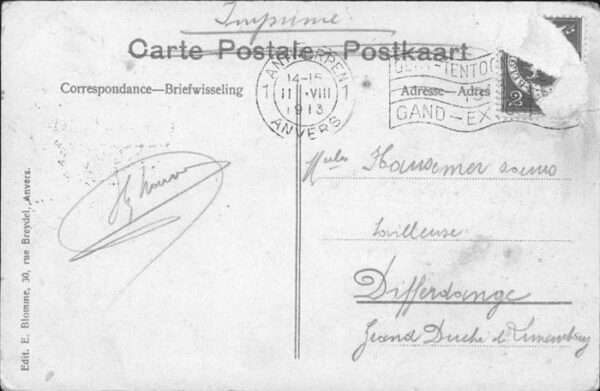 Imprimé
Carte Postale Postkaart
Correspondance—Briefwisseling
Adresse—Adres
1 ANTWERPEN 1
14-15
11 VIII
1913
ANVERS
GENT-TENTOO
GAND-EX
2
Melles Hansemer soeurs
tailleuse
Differdange
Grand Duché d. Luxembourg
Edit. E. Blomme, 30, rue Breydel, Anvers.